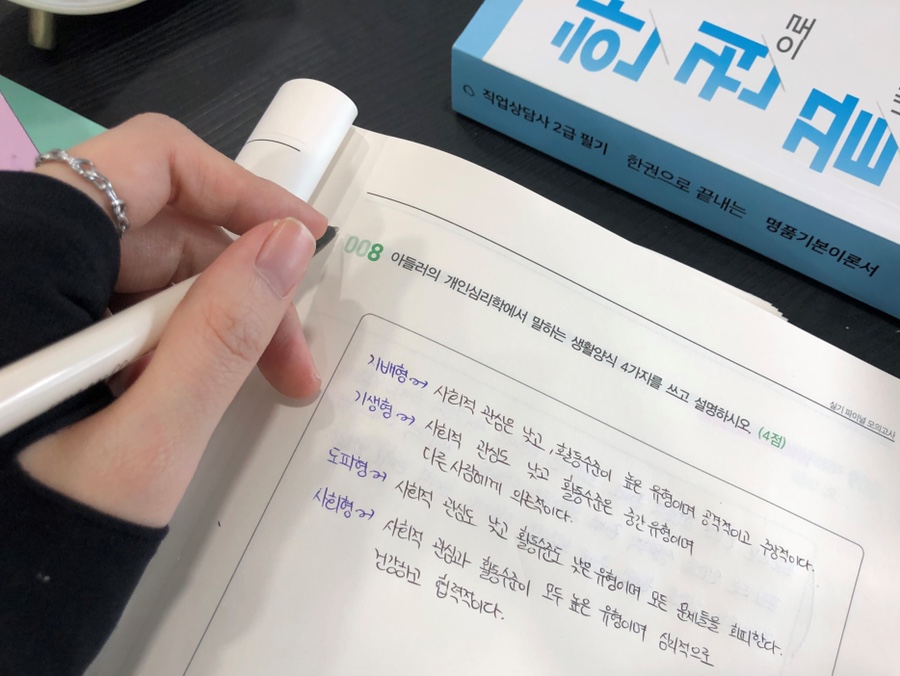 직업상담사 2급 필기 한권으로 끝내는 명품기본이론서
실기 파이널 모의고사
008 아들러의 개인심리학에서 말하는 생활양식 4가지를 쓰고 설명하시오. (4점)
기배형→ 사회적 관심은 낮고, 활동수준이 높은 유형이며 공격적이고 주장적이다.
기생형→ 사회적 관심도 낮고 활동수준은 중간 유형이며
다른 사람에게 의존적이다.
도피형→ 사회적 관심도 낮고 활동수준도 낮은 유형이며 모든 문제들을 회피한다.
사회형→ 사회적 관심과 활동수준이 모두 높은 유형이며 심리적으로
건강하고 협력적이다.